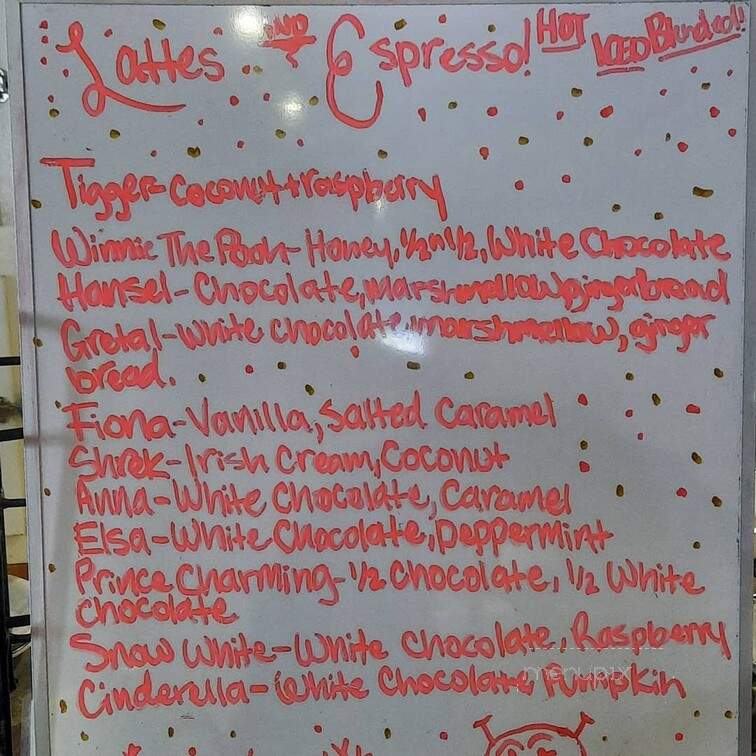 Lattes AND Espresso! HOT ICED Blended!
Tigger-Coconut+raspberry
Winnie The Pooh-Honey, 1/2 n 1/2, White Chocolate
Hansel-Chocolate, marshmellow, gingerbread
Gretal-White chocolate, marshmellow, ginger
bread.
Fiona-Vanilla, Salted Caramel
Shrek-Irish Cream, Coconut
Anna-White Chocolate, Caramel
Elsa-White Chocolate, peppermint
Prince Charming-1/2 Chocolate, 1/2 White
Chocolate
Snow White-White Chocolate, Raspberry
Cinderella-White Chocolate, Pumpkin
menupix